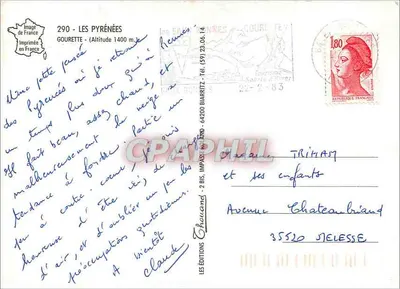 Image
de France
Imprimée
en France
290 - LES PYRÉNÉES
GOURETTE - (Altitude 1400 m.)
Une petite pensée
des Pyrénées où je retrouve
un temps plus doux qu'à Rennes.
Il fait beau, assez chaud, et
malheureusement la neige a
tendance à fondre. Partie un
peu à contre coeur, je suis
heureuse d'être ici, de changer
d'air, et d'oublier un peu les
préoccupations quotidiennes.
A bientôt
Claude
LES ÉDITIONS Thouand - 2 BIS, IMPASSE - 64200 BIARRITZ - Tél. (59) 23.06.14
83
1,80
REPUBLIQUE FRANÇAISE
CPAPHIL
Madame TRIHAM
et ses enfants
Avenue Chateaubriand
35520 MELESSE